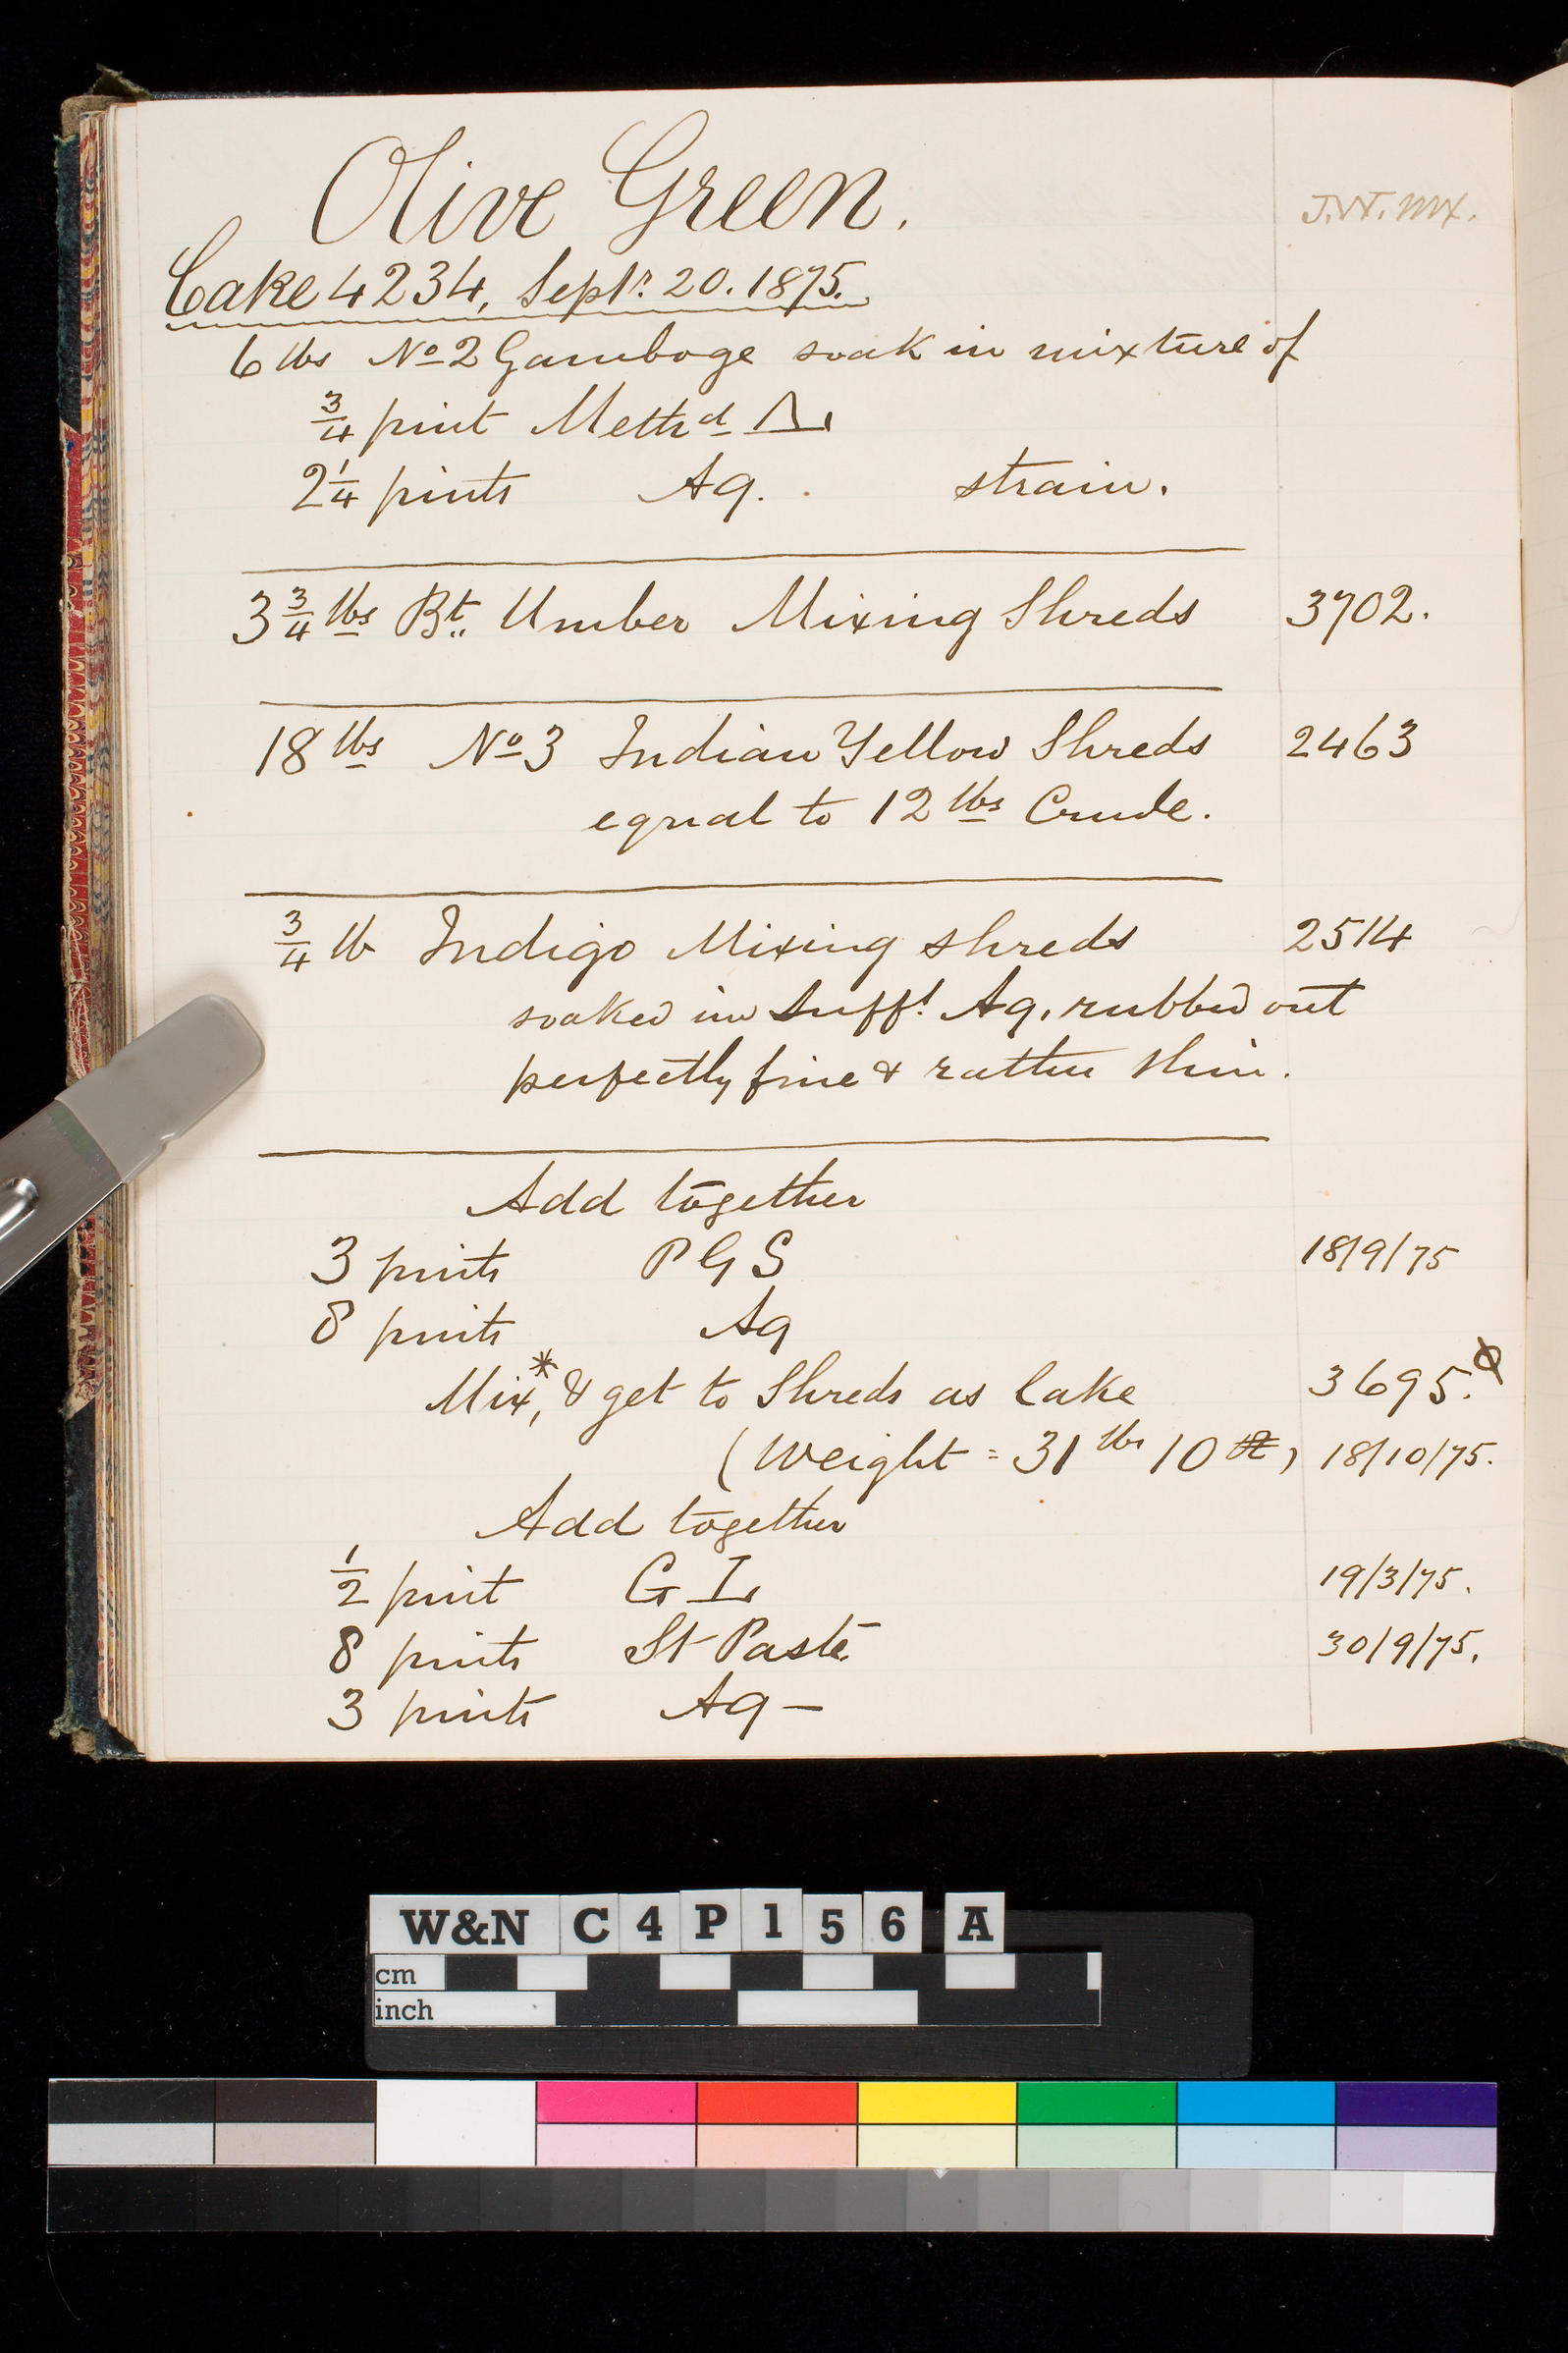 Olive Green.
J.W. mx.
Cake 4234, Septr. 20. 1875.
6 lbs No 2 Gamboge soak in mixture of
3/4 pint Methd
2 1/4 pints Aq. strain.
3 3/4 lbs Bt. Umber Mixing Shreds 3702.
18 lbs No 3 Indian Yellow Shreds 2463
equal to 12 lbs Crude.
3/4 lb Indigo Mixing shreds 2514
soaked in Sufft Aq. rubbed out
perfectly fine & rather thin.
Add together
3 pints P G S 18/9/75
8 pints Aq
Mix,* & get to Shreds as Cake 3695. ϕ
(Weight = 31 lbs 10 ) 18/10/75.
Add together
1/2 pint G 19/3/75.
8 pints St Paste 30/9/75.
3 pints Aq –
W&N C4P156 A
cm
inch